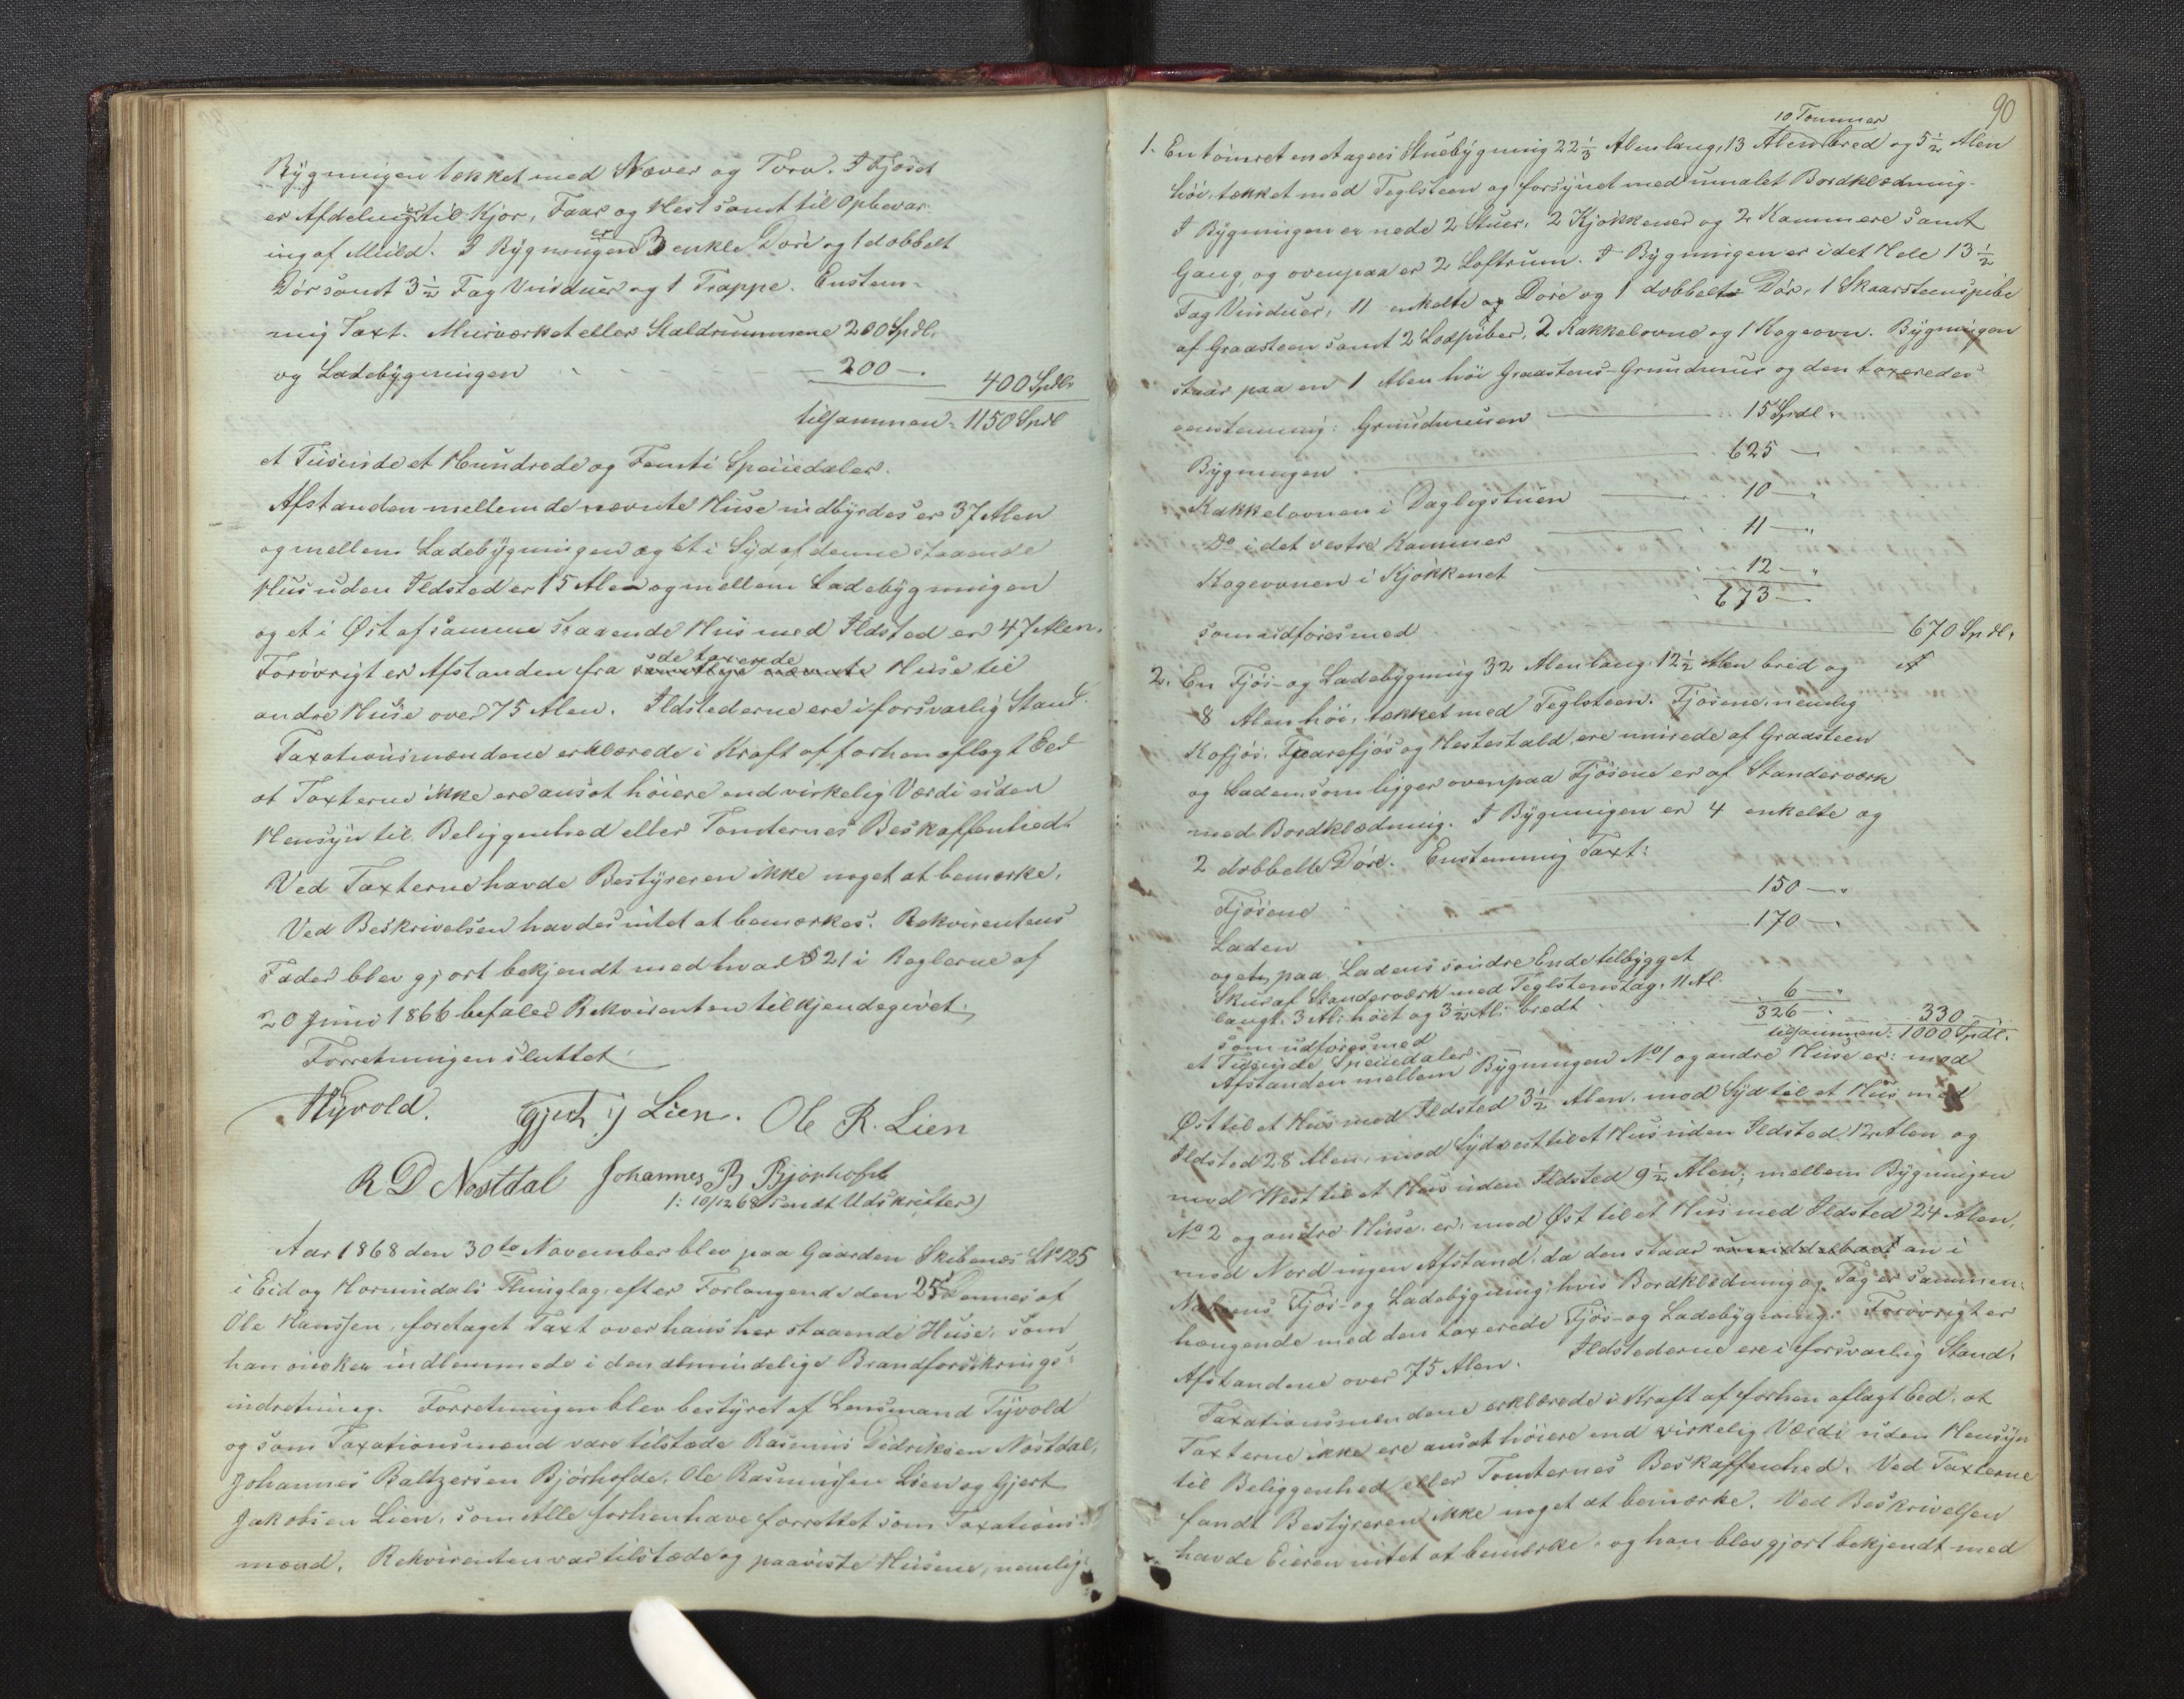 Bygningen tækket med Næver og Torv. I Fjøset
er Afdelinger til Kjør, Faar og Hest samt til Opbevar-
ing af Muld. I Bygningen er 3 enkle Døre og 1 dobbelt
Dør samt 3½ Fag Vinduer og 1 Trappe. Enstem-
mig Taxt. Murværket eller Staldrummene 200 Spdl.
og Ladebygningen 200 —
400 Spdlr
tilsammen = 1150 Spdl
et Tusinde et Hundrede og Femti Speciedaler.
Afstanden mellem de nævnte Huse indbyrdes er 37 Alen
og mellem Ladebygningen og et i Syd af denne staaende
Huus uden Ildsted er 15 Alen og mellem Ladebygningen
og et i Øst af samme staaende Hus med Ildsted er 47 Alen.
de taxerede
Forøvrigt er Afstanden fra samtlige nævnte Huse til
andre Huse over 75 Alen. Ildstederne ere i forsvarlig Stand.
Taxationsmændene erklærede i Kraft af forhen aflagt Eed
at Taxterne ikke ere ansat høiere end virkelig Værdi uden
Hensyn til Beliggenhed eller Tomternes Beskaffenhed.
Ved Taxterne havde Bestyreren ikke noget at bemærke.
Ved Beskrivelsen havdes intet at bemærkes. Rekvirentens
Fader blev gjort bekjendt med hvad § 21 i Reglerne af
20 Juni 1866 befaler Rekvirenten tilkjendegivet.
Forretningen sluttet
Tyvold. Gjert J Lien. Ole R. Lien
R D Nøstdal Johannes B Bjørhofde
/: 10/12 68 sendt Udskrifter)
Aar 1868 den 30te November blev paa Gaarden Skibenes LN 125
i Eid og Hornindals Thinglag, efter Forlangende den 25 dennes af
Ole Hanssen, foretaget Taxt over hans her staaende Huse, som
han ønsker indlemmede i den almindelige Brandforsikrings-
indretning. Forretningen blev bestyret af Lensmand Tyvold
og som Taxationsmænd vare tilstæde Rasmus Didriksen Nøstdal,
Johannes Baltzersen Bjørhofde, Ole Rasmussen Lien og Gjert
Jakobsen Lien, som Alle forhen have forrettet som Taxations-
mænd. Rekvirenten var tilstæde og paaviste Husene, nemlig:
90
10 Tommer
1. En tømret en etages Stuebygning 22⅓ Alen lang, 13 Alen bred og 5½ Alen
høi, tækket med Teglsteen og forsynet med umalet Bordklædning.
I Bygningen er nede 2 Stuer, 2 Kjøkkener og 2 Kammere samt
Gang, og ovenpaa er 2 Loftrum. I Bygningen er i det Hele 13½
Fag Vinduer, 11 enkelte og Døre og 1 dobbelt Dør, 1 Skaarsteenspibe
af Graasteen samt 2 Lodpiber, 2 Kakkelovne og 1 Kogeovn. Bygningen
staar paa en 1 Alen høi Graastens-Grundmur og den taxeredes
eenstemmig: Grundmuren 15 Spdl.
Bygningen 625 —
Kakkelovnen i Dagligstuen 10 — "
Do i det vestre Kammer 11 — "
Kogeovnen i Kjøkkenet 12 — "
673 —
som udføres med 670 Spdl.
2. En Fjøs- og Ladebygning 32 Alen lang, 12½ Alen bred og
8 Alen høi, tækket med Teglsteen. Fjøsene, nemlig
Kofjøs, Faarefjøs og Hestestald, ere murede af Graasteen
og Laden, som ligger ovenpaa Fjøsene er af Standerværk
med Bordklædning. I Bygningen er 4 enkelte og
2 dobbelte Døre. Enstemmig Taxt:
Fjøsene 150 — "
Laden 170 — "
og et, paa Ladens søndre Ende tilbygget
Skur af Standerværk med Teglstenstag, 11 Al.
langt, 3 Al: høit og 3½ Al: bredt 6 — "
som udføres med 326 — 330 —
tilsammen: 1000 Spdl.
et Tusinde Speciedaler.
Afstanden mellem Bygningen No 1 og andre Huse er: mod
Øst til et Hus med Ildsted 3½ Alen, mod Syd til et Hus med
Ildsted 28 Alen, mod Sydvest til et Hus uden Ildsted 12 Alen og
mod Vest til et Hus uden Ildsted 9½ Alen; mellem Bygningen
No 2 og andre Huse, er: mod Øst til et Hus med Ildsted 24 Alen,
mod Nord ingen Afstand, da den staar umiddelbart an i
Naboens Fjøs- og Ladebygning, hvis Bordklædning og Tag er sammen-
hængende med den taxerede Fjøs- og Ladebygning. Forøvrigt er
Afstandene over 75 Alen. Ildstederne ere i forsvarlig Stand.
Taxationsmændene erklærede i Kraft af forhen aflagt Eed, at
Taxterne ikke ere ansat høiere end virkelig Værdi uden Hensyn
til Beliggenhed eller Tomternes Beskaffenhed. Ved Taxterne
fandt Bestyreren ikke noget at bemærke. Ved Beskrivelsen
havde Eieren intet at bemærke, og han blev gjort bekjendt med